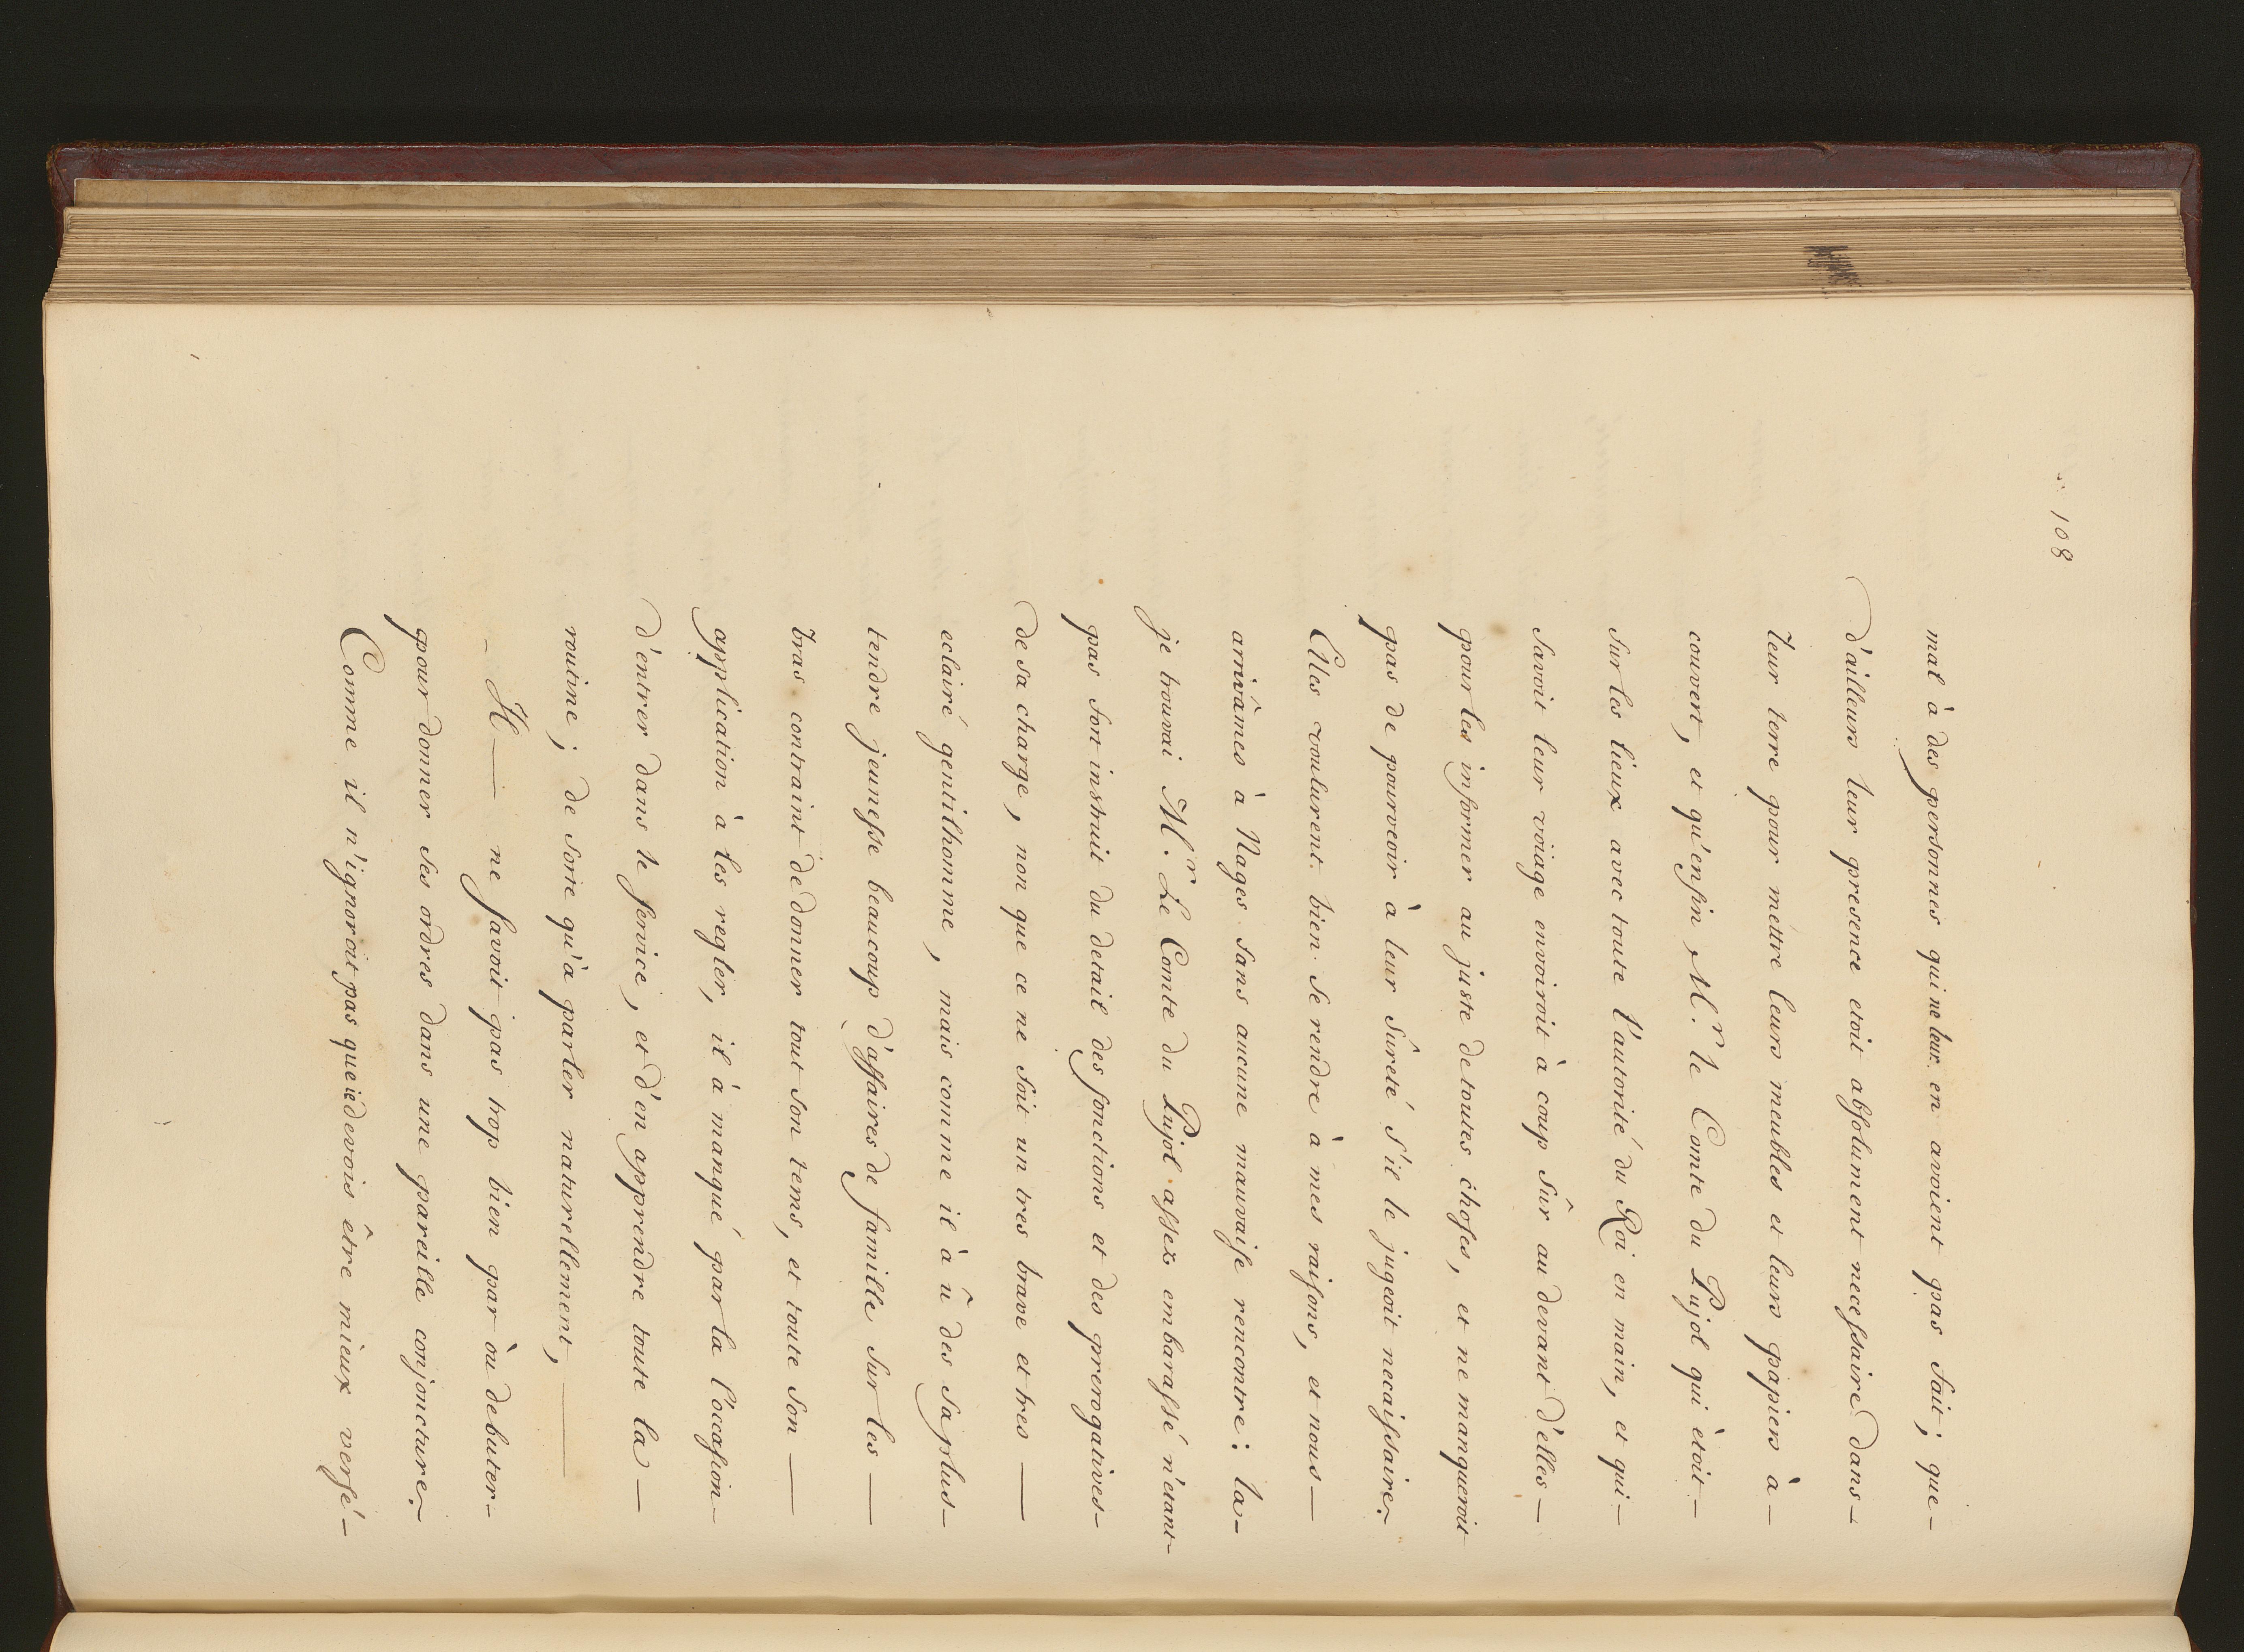 108
mal à des personnes qui ne leur en avoient pas fait; que -
d'ailleurs leur presence etoit absolument necessaire dans -
leur terre pour mettre leurs meubles et leurs papiers à -
couvert, et qu'enfin M.r le Comte du Pujol qui étoit -
sur les lieux avec toute l'autorité du Roi en main, et qui -
savoit leur voiage envoiroit à coup sûr au devant d'elles -
pour les informer au juste de toutes choses, et ne manqueroit
pas de pourvoir à leur sûreté s'il le jugeoit necaissaire.
Elles voulurent bien se rendre à mes raisons, et nous -
arrivâmes à Nages sans aucune mauvaise rencontre: la -
je trouvai M.r Le Comte du Pujol assez embarassé n'étant -
pas fort instruit du detail des fonctions et des prerogatives -
de sa charge, non que ce ne soit un tres brave et tres -
eclairé gentilhomme, mais comme il à û des sa plus -
tendre jeunesse beaucoup d'affaires de famille sur les -
bras contraint de donner tout son tems, et toute son -
application à les regler, il à manqué par la l'occasion -
d'entrer dans le service, et d'en apprendre toute la -
routine; de sorte qu'à parler naturellement, -
Il - ne savoit pas trop bien par où debuter -
pour donner ses ordres dans une pareille conjoncture.
Comme il n'ignoroit pas que je devois être mieux versé -